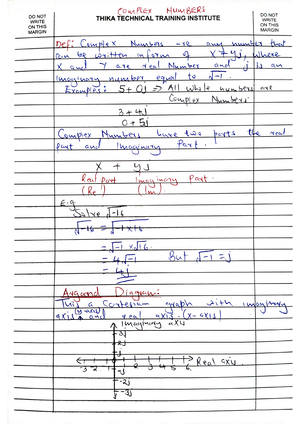 COMPLEX NUMBERS
DO NOT WRITE ON THIS MARGIN
THIKA TECHNICAL TRAINING INSTITUTE
DO NOT WRITE ON THIS MARGIN
Def: Complex Numbers are any number that
can be written inform of x + yj, where
x and y are real Number and j is an
Imaginary number equal to √-1.
Examples: 5 + 0j ⇒ All whole numbers are
Complex Numbers.
3 + 4j
0 + 5j
Complex Numbers have two parts the real
part and Imaginary Part.
x + yj
Real part Imaginary Part.
(Re) (Im)
E.g
Solve √-16
√-16 = √-1 x 16
= √-1 x √16
= 4√-1 But √-1 = j
= 4j
Argand Diagram:
This a Cartesian graph with imaginary
axis (y-axis) and real axis (x-axis)
Imaginary axis
3j
2j
j
-3 -2 -1 1 2 3 4 5 6 Real axis
-j
-2j
-3j